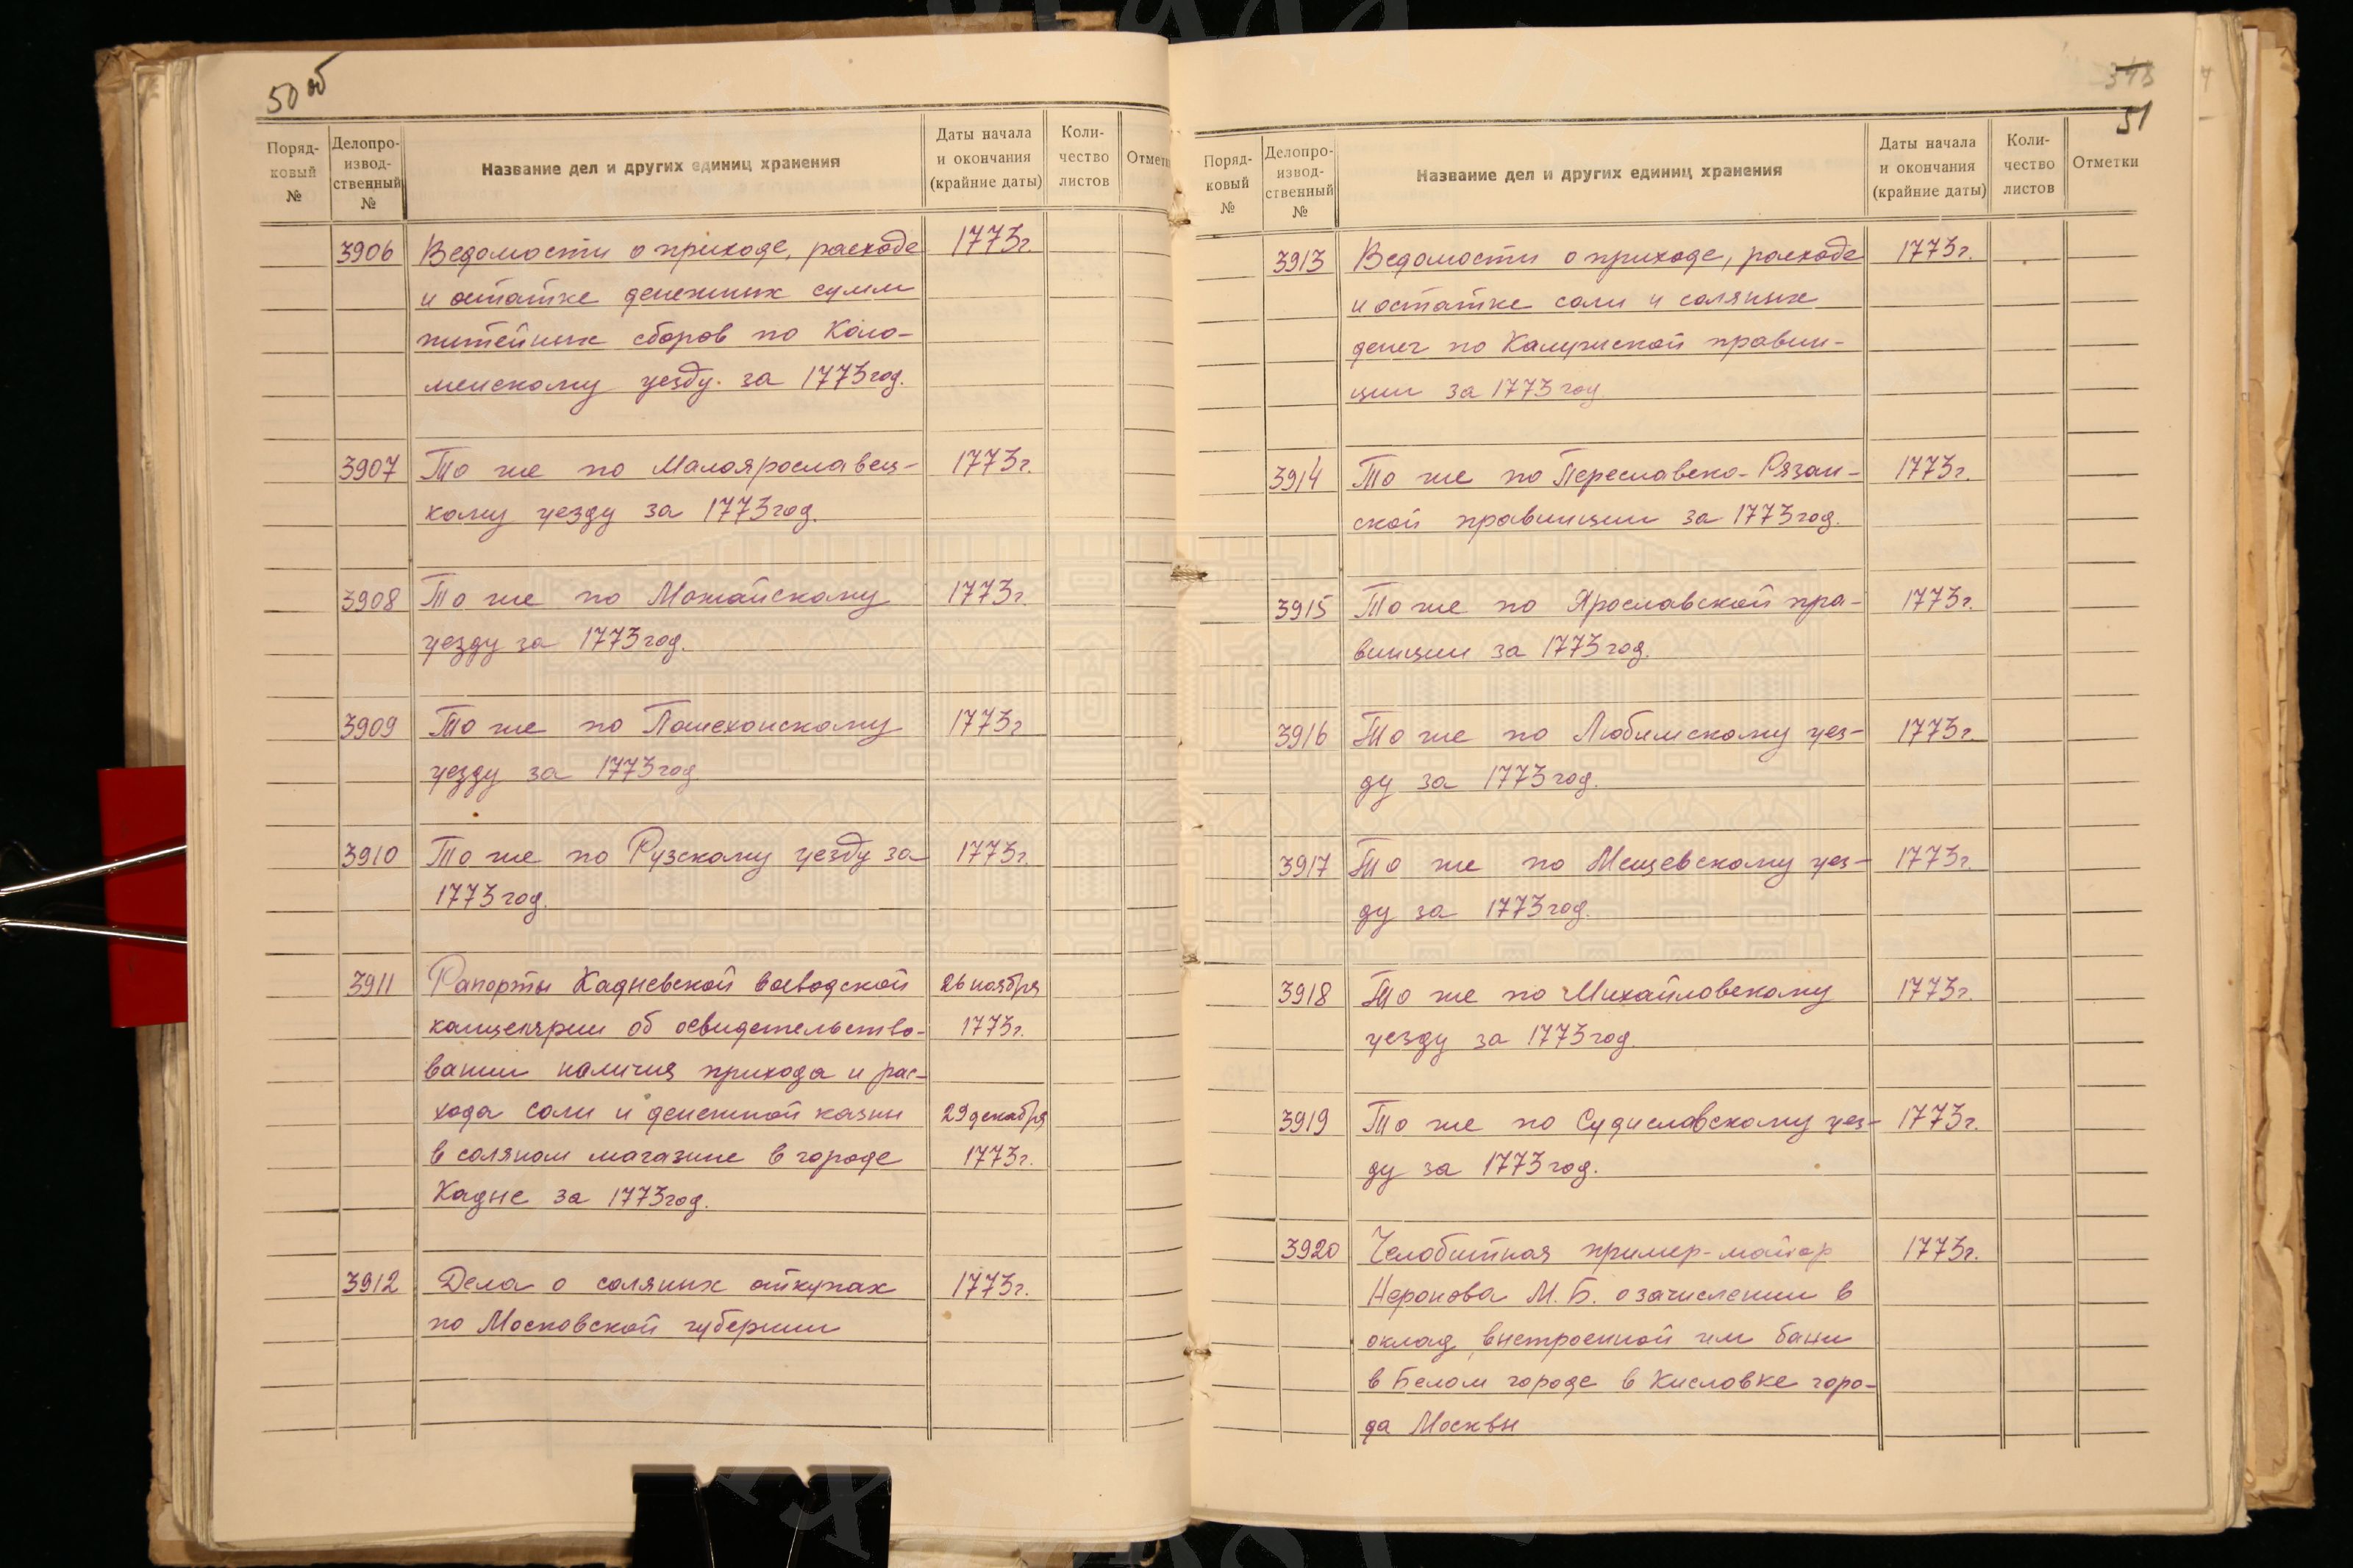 50 об
Поряд-
ковый
№
Делопро-
извод-
ственный
№
Название дел и других единиц хранения
Даты начала
и окончания
(крайние даты)
Коли-
чество
листов
Отметк
3906 Ведомости о приходе, расходе 1773г.
и остатке денежных сумм
питейных сборов по Коло-
менскому уезду. за 1773 год.
3907 То же по Малоярославец- 1773г.
кому уезду за 1773 год.
3908 То же по Можайскому 1773г.
уезду за 1773 год.
3909 То же по Пошехонскому 1773г
уезду за 1773 год
3910 То же по Рузскому уезду за 1773г.
1773 год.
3911 Рапорты Кадневской воеводской 26 ноября
канцелярии об освидетельство- 1773г.
вании наличия прихода и рас-
хода соли и денежной казны 29 декабря
в соляном магазине в городе 1773г.
Кадне за 1773 год.
3912 Дела о соляных откупах 1773г.
по Московской губернии
51
Поряд-
ковый
№
Делопро-
извод-
ственный
№
Название дел и других единиц хранения
Даты начала
и окончания
(крайние даты)
Коли-
чество
листов
Отметки
3913 Ведомости о приходе, расходе 1773г.
и остатке соли и соляных
денег по Калужской провин-
ции за 1773 год
3914 То же по Переславско-Рязан- 1773г.
ской провинции за 1773 год.
3915 То же по Ярославской про- 1773г.
винции за 1773 год.
3916 То же по Любимскому уез- 1773г.
ду за 1773 год.
3917 То же по Мещевскому уез- 1773г.
ду за 1773 год.
3918 То же по Михайловскому 1773г.
уезду за 1773 год.
3919 То же по Судиславскому уез- 1773г.
ду за 1773 год.
3920 Челобитная пример-майор 1773г.
Неронова М.Б. о зачислении в
оклад выстроенной им бани
в Белом городе в Кисловке горо-
да Москвы